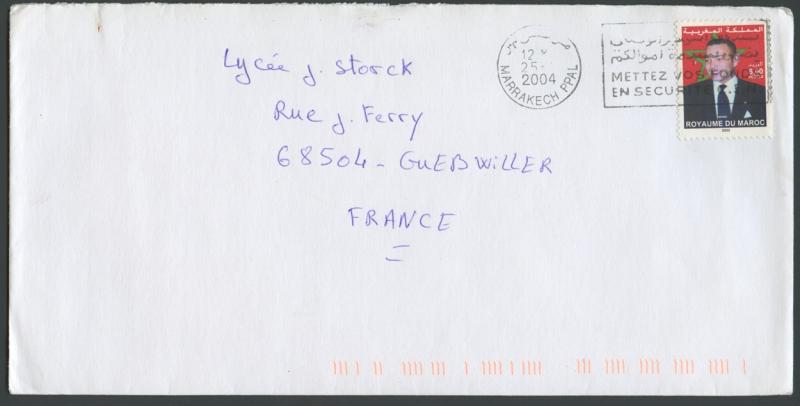 Lycée J. Storck
Rue J. Ferry
68504 - GUEBWILLER
FRANCE
12
25-
2004
MARRAKECH PPAL
أموالكم
METTEZ VOS FONDS
EN SECURITE
المملكة المغربية
ROYAUME DU MAROC
2002